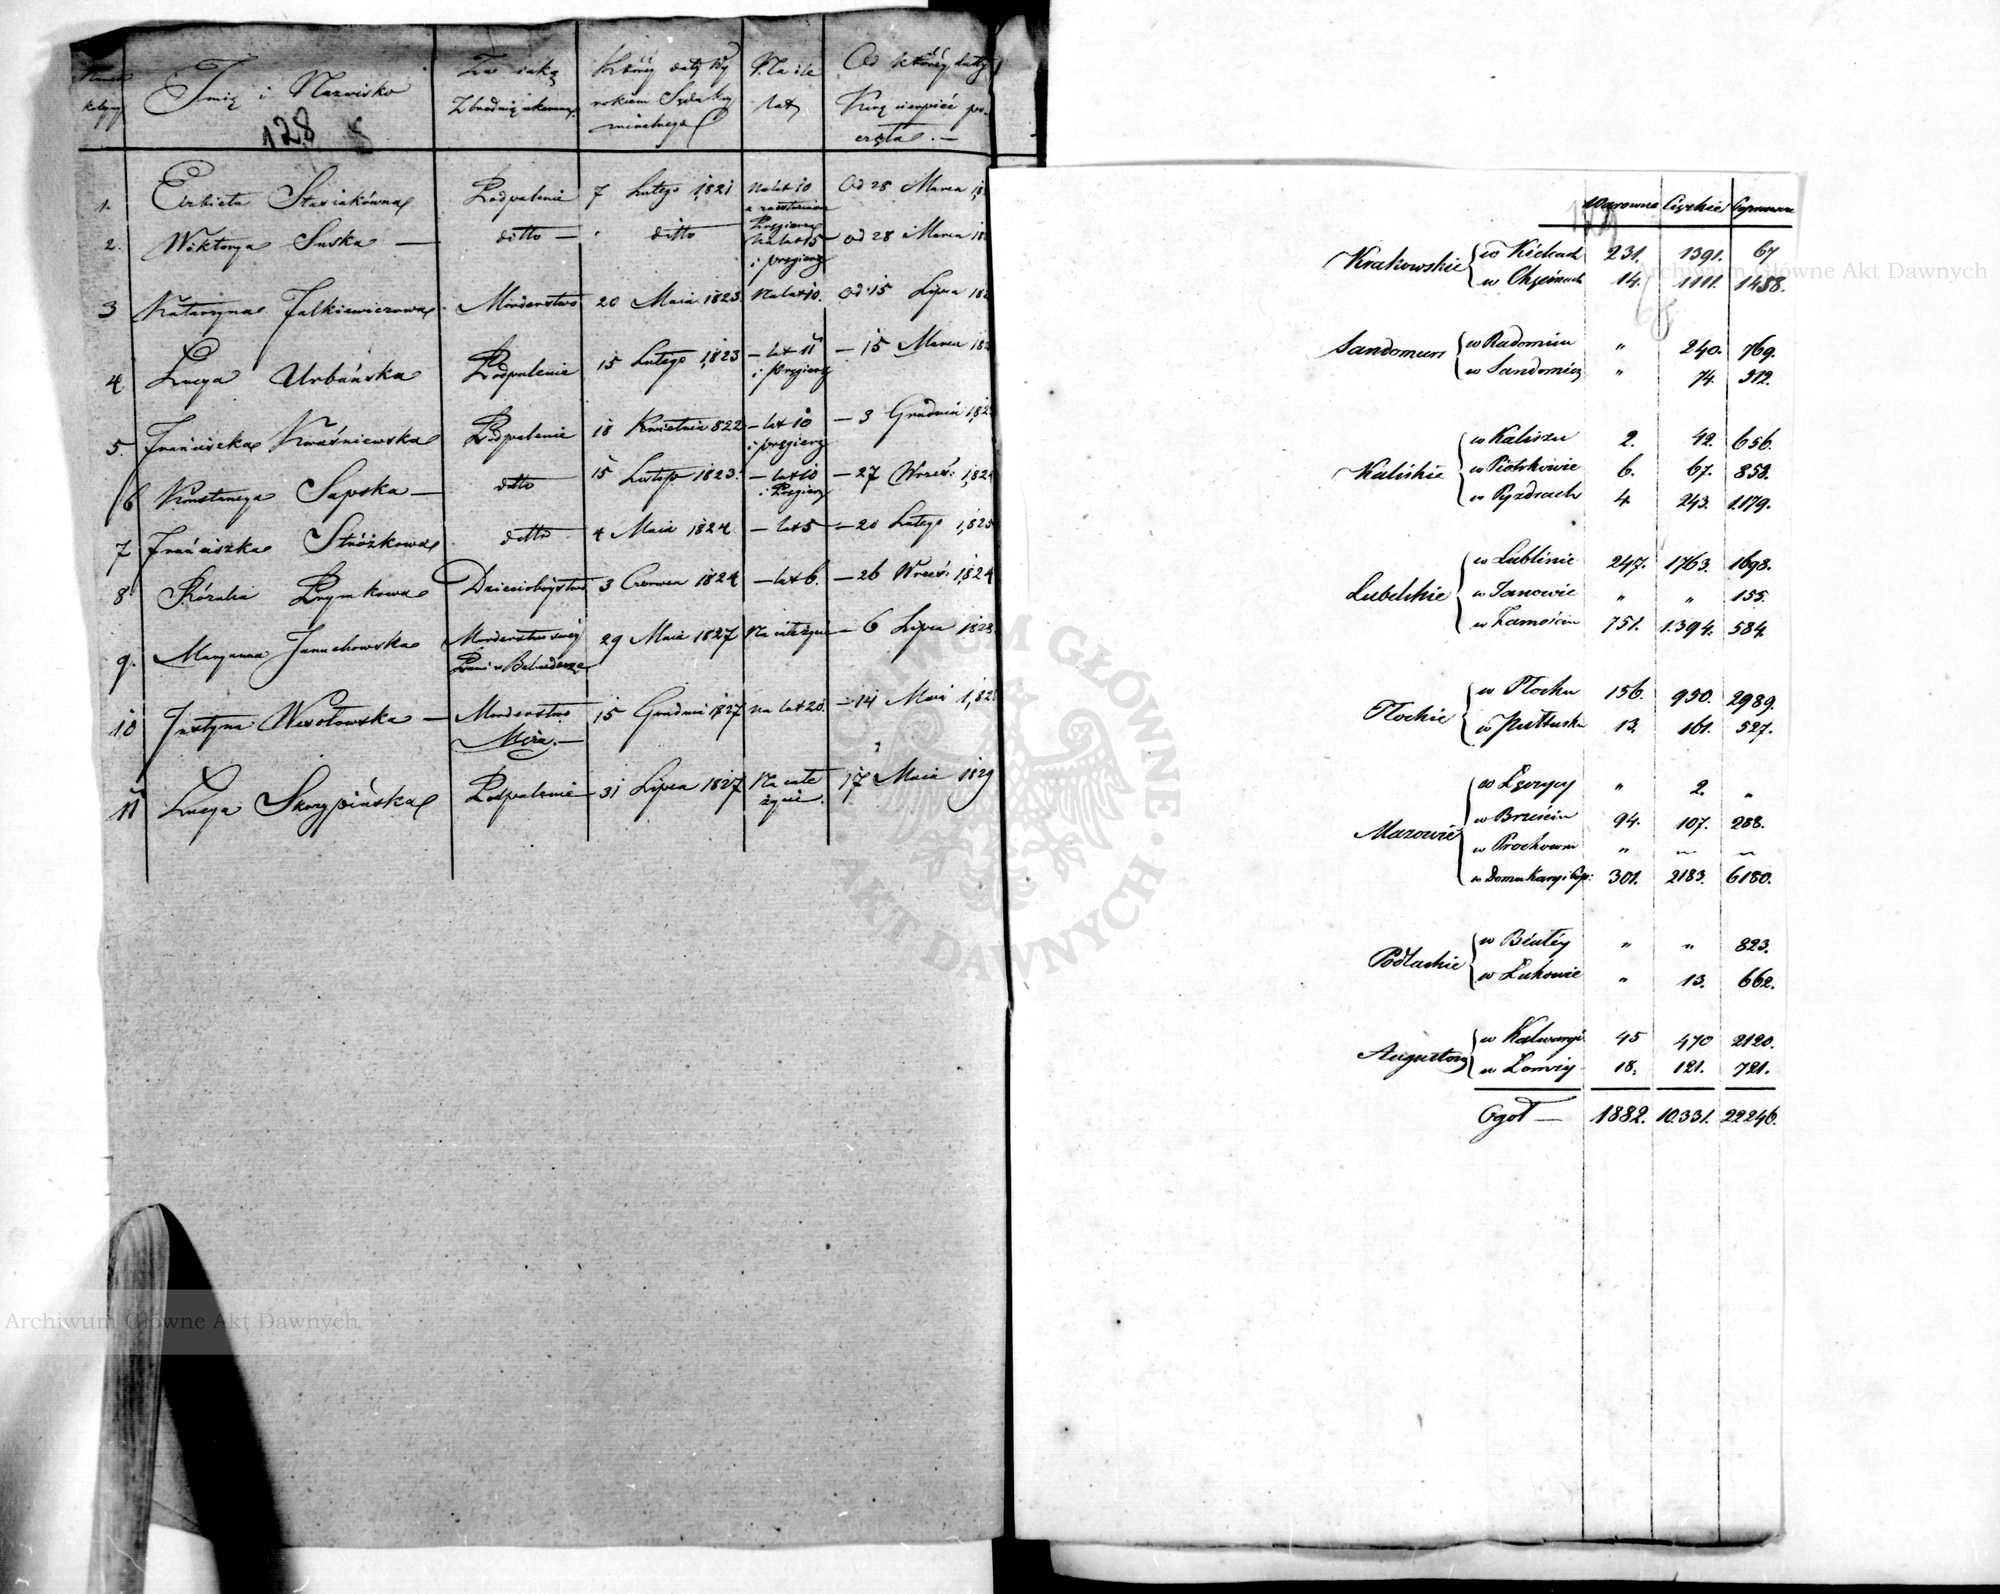 Imię i Nazwisko
Za iaką
Zbrodnię ukarana
Którey daty Wy
rokiem Sądu Kry
minalnego
Na ile
lat
Od którey daty
Karę cierpieć po-
częła. —
128
1. Elżbieta Stasiakówna Podpalenie 7 Lutego 1821 Na lat 10 Od 28 Marca
2. Wiktorya Suska — ditto — ditto Pręgierz Na lat 15 i pręgierz od 28 Marca
3 Katarzyna Falkiewiczowa Morderstwo 20 Maia 1823 Na lat 10. Od 15 Lipca
4. Łucya Urbańska Podpalenie 15 Lutego 1823 — lat 11 i Pręgierz — 15 Marca
5. Franciszka Kwaśniewska Podpalenie 18 Kwietnia 822 — lat 10 i pręgierz — 3 Grudnia
6 Konstancya Sapska — ditto 15 Listop 1823. — lat 10 i Pręgierz — 27 Wrześ: 1824
7 Franciszka Stróżkowa ditto 4 Maia 1824 — lat 5 — 20 Lutego 1825
8 Rózalia Prymkowa Dzieciobóystwo 3 Czerwca 1824 — lat 6. — 26 Wrześ: 1824
9. Maryanna Januchowska Morderstwo swey Pani w Belwederze 29 Maia 1827 Na całe życie — 6 Lipca 1828
10 Justyna Wesołowska — Morderstwo Męża. — 15 Grudnia 1827 na lat 20. — 14 Maia
11 Łucya Skrzypińska Podpalenie — 31 Lipca 1827 Na całe życie. 17 Maia 1829
Warowne Ciężkie Poprawcze
Krakowskie w Kielcach 231. 1391. 67
w Chęcinach 14. 1111. 1458.
Sandomirs w Radomiu " 240. 769.
w Sandomierz " 74. 312.
Kaliskie w Kaliszu 2. 42. 656.
w Piotrkowie 6. 67. 858.
w Pyzdrach 4. 243. 1179.
Lubelskie w Lublinie 247. 1763. 1698.
w Janowie " " 155.
w Zamościu 751. 1.394. 584.
Płockie w Płocku 156. 950. 2989.
w Pułtusku 13. 161. 527.
Mazowie w Łęczycy " 2. "
w Brześciu 94. 107. 288.
w Prochowni " " "
w Domu Kary i Pop: 301. 2183. 6180.
Podlaskie w Białéy " " 823.
w Łukowie " 13. 662.
Augustows w Kalwaryi 45 470 2120.
w Łomży 18. 121. 721.
Ogół — 1882. 10.331. 22246.
Archiwum Główne Akt Dawnych
ARCHIWUM GŁÓWNE AKT DAWNYCH
Archiwum Główne Akt Dawnych